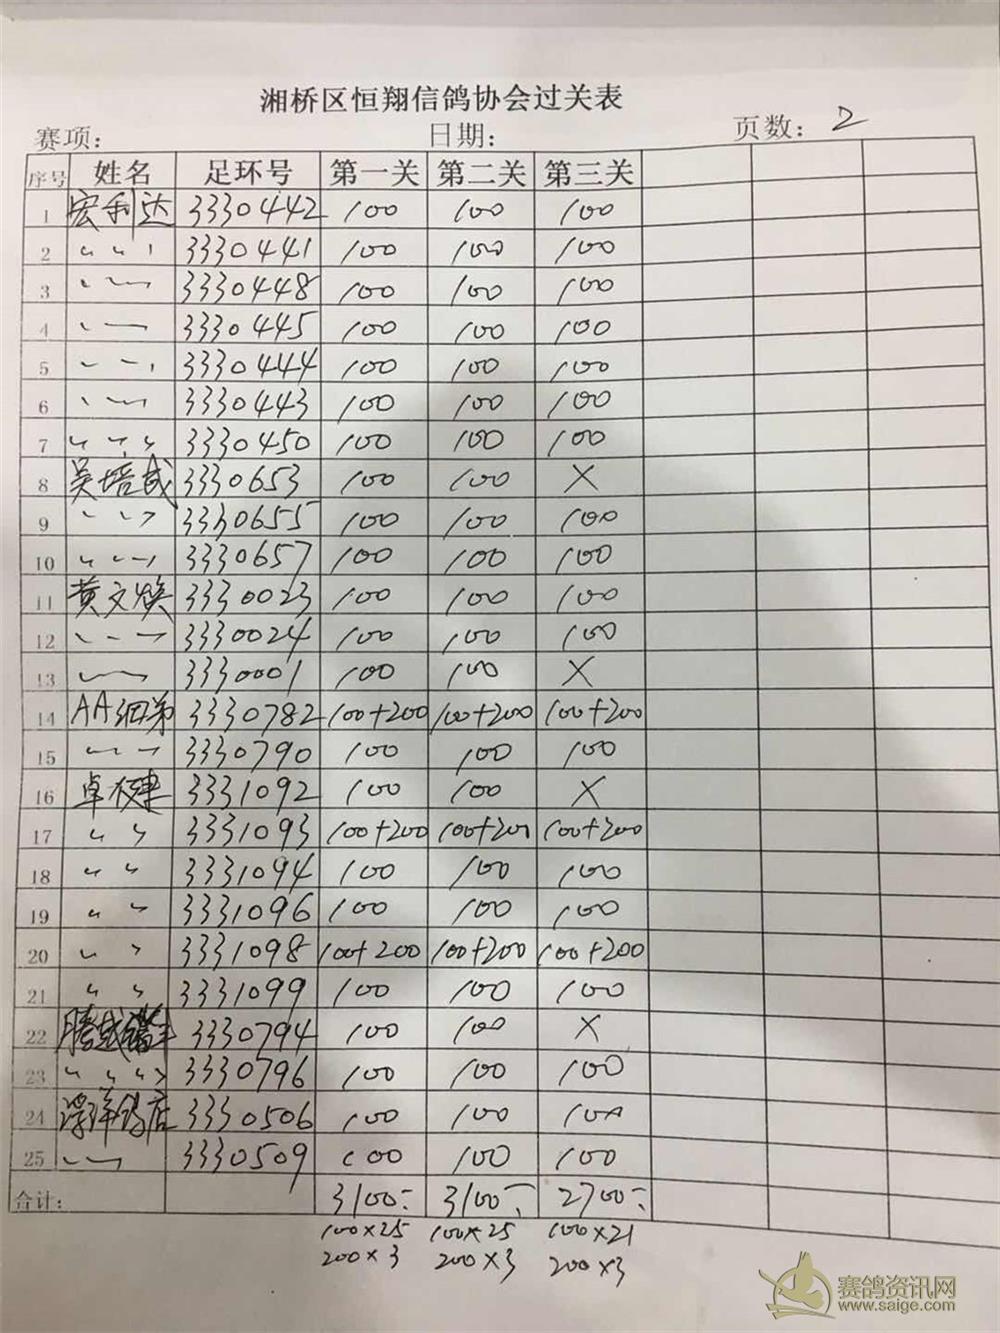 湘桥区恒翔信鸽协会过关表
赛项: 日期: 页数: 2
序号 姓名 足环号 第一关 第二关 第三关
1 宏利达 3330442 100 100 100
2 〃 〃 〃 3330441 100 100 100
3 〃 〃 3330448 100 100 100
4 〃 〃 3330445 100 100 100
5 〃 〃 〃 3330444 100 100 100
6 〃 〃 3330443 100 100 100
7 〃 〃 〃 3330450 100 100 100
8 吴培成 3330653 100 100 X
9 〃 〃 〃 3330655 100 100 100
10 〃 〃 〃 3330657 100 100 100
11 黄文焕 3330023 100 100 100
12 〃 〃 〃 3330024 100 100 100
13 〃 〃 3330001 100 100 X
14 AA细弟 3330782 100+200 100+200 100+200
15 〃 〃 〃 3330790 100 100 100
16 卓 3331092 100 100 X
17 〃 〃 3331093 100+200 100+200 100+200
18 〃 〃 3331094 100 100 100
19 〃 〃 3331096 100 100 100
20 〃 〃 3331098 100+200 100+200 100+200
21 〃 〃 3331099 100 100 100
22 3330794 100 100 X
23 〃 〃 〃 〃 3330796 100 100 100
24 浮洋鸽店 3330506 100 100 100
25 〃 〃 3330509 100 100 100
合计: 3100:- 3100- 2700:-
100×25 100×25 100×21
200×3 200×3 200×3
赛鸽资讯网
www.saige.com